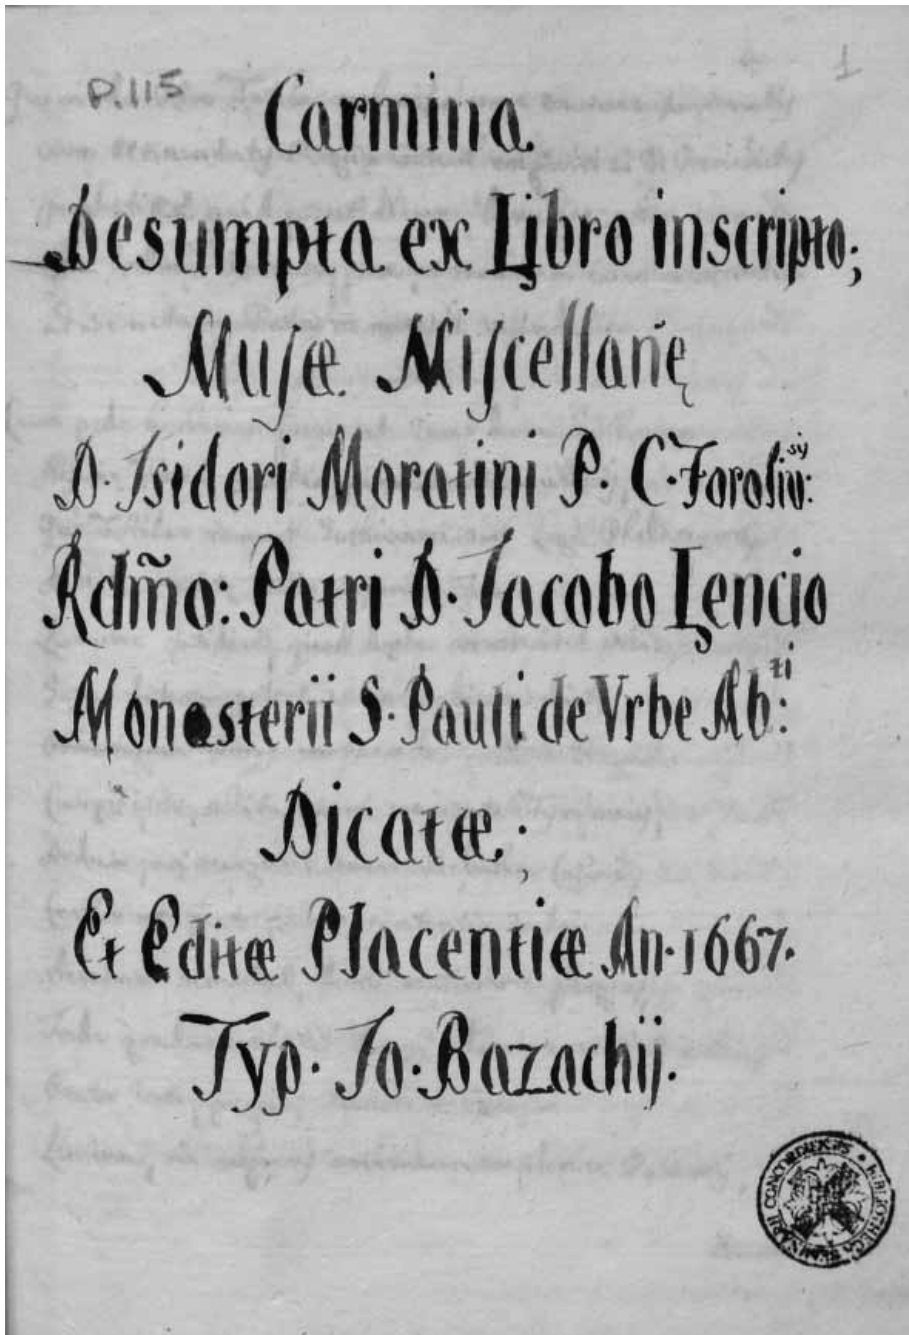 p.115
1
Carmina
Desumpta ex Libro inscripto;
Muſæ Miſcellanę
D. Isidori Moratini P. C. Foroliv:sij
Rdm̃o: Patri D. Jacobo Lencio
Monasterii S. Pauli de Vrbe Ab:ti
Dicatæ;
Et Editæ Placentiæ An. 1667.
Typ. Jo. Bazachij.
SEMINARII CONCORDIENSIS • BIBLIOTHECA